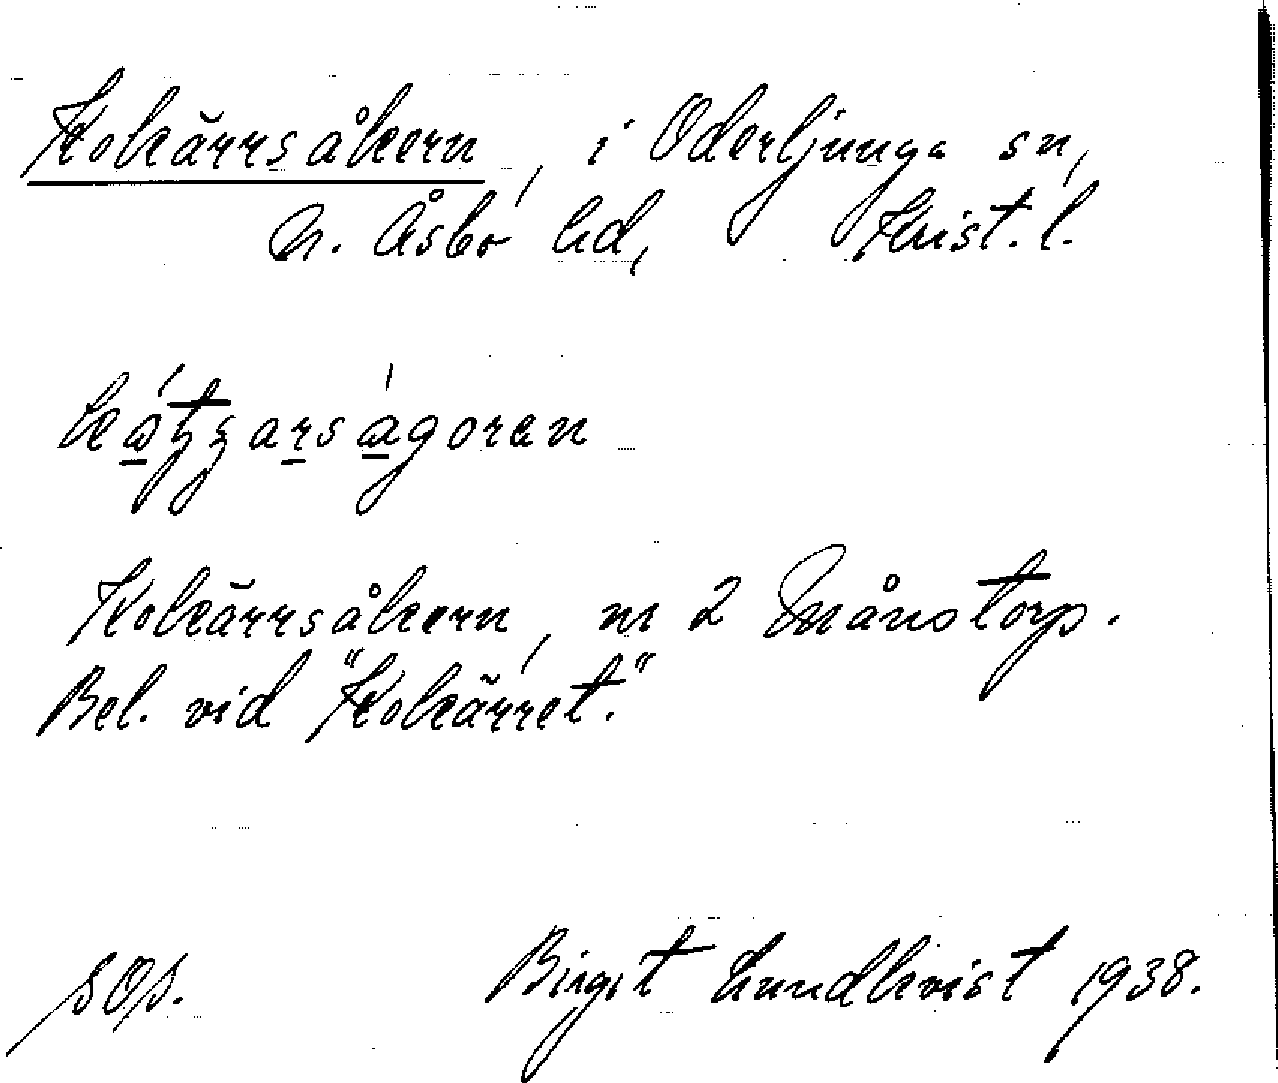 Kokärrsåkern, i Oderljunga sn,
N. Åsbo hd, Krist. l.
Kokärrsåkern, nr 2 Månstorp.
Bel. vid "Kokärret."
SOS. Birgit Lundkvist 1938.